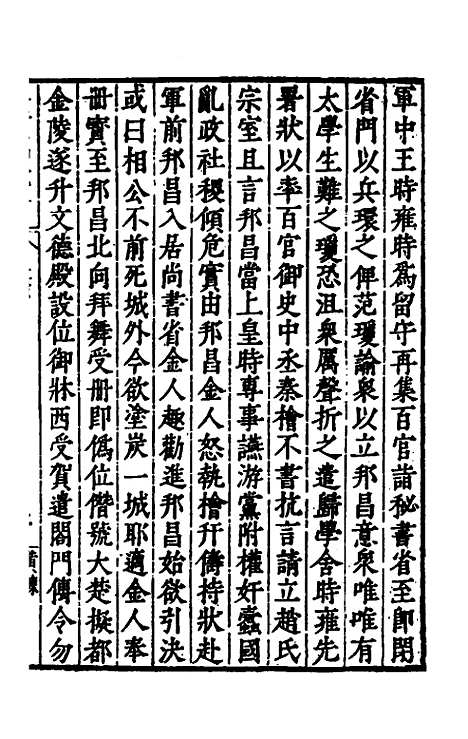 軍中王時雍時爲留守再集百官詣秘書省至即閉
省門以兵環之俾范瓊諭衆以立邦昌意衆唯唯有
太學生難之瓊恐沮衆厲聲折之遣歸學舍時雍先
署狀以率百官御史中丞秦檜不書抗言請立趙氏
宗室且言邦昌當上皇時專事讌游黨附權奸蠹國
亂政社稷傾危實由邦昌金人怒執檜幵儔持狀赴
軍前邦昌入居尚書省金人趣勸進邦昌始欲引決
或曰相公不前死城外今欲塗炭一城耶適金人奉
冊實至邦昌北向拜舞受冊即僞位僭號大楚擬都
金陵遂升文德殿設位御牀西受賀遣閤門傳令勿